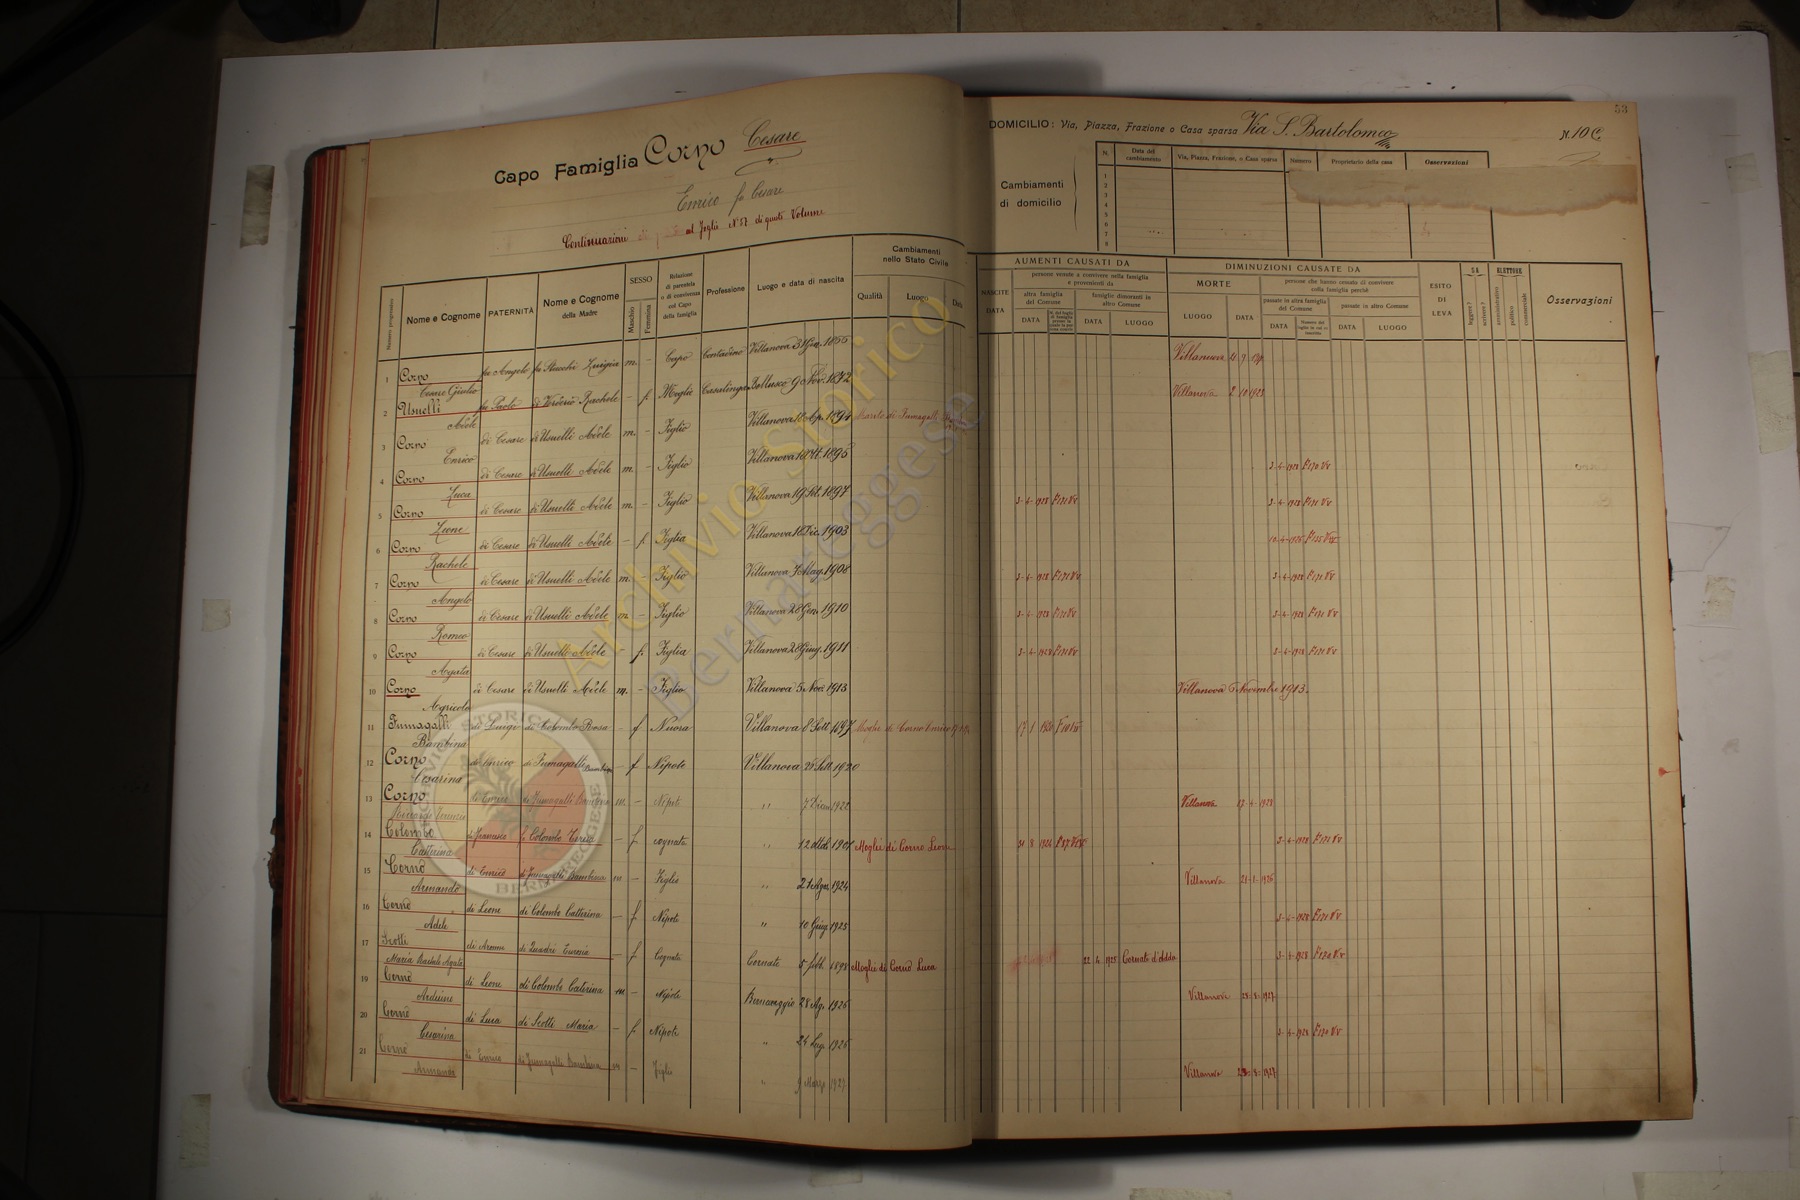 53
Capo Famiglia Corno Cesare
Enrico fu Cesare
Continuazioni al foglio N° 57 di questo Volume
DOMICILIO: Via, Piazza, Frazione o Casa sparsa Via S. Bartolomeo N. 10 C.
Cambiamenti di domicilio
N. Data del cambiamento Via, Piazza, Frazione, o Casa sparsa Numero Proprietario della casa Osservazioni
1
2
3
4
5
6
7
8
Numero progressivo Nome e Cognome PATERNITÀ Nome e Cognome della Madre SESSO Maschio Femmina Relazione di parentela o di convivenza col Capo della famiglia Professione Luogo e data di nascita Cambiamenti nello Stato Civile Qualità Luogo Data
AUMENTI CAUSATI DA
NASCITE DATA
persone venute a convivere nella famiglia e provenienti da
altra famiglia del Comune DATA
famiglie dimoranti in altro Comune DATA LUOGO
DIMINUZIONI CAUSATE DA
MORTE LUOGO DATA
persone che hanno cessato di convivere colla famiglia perchè
passate in altra famiglia del Comune DATA
passate in altro Comune DATA LUOGO
ESITO DI LEVA
SA leggere? scrivere?
ELETTORE amministrativo politico commerciale
Osservazioni
1 Corno Cesare Giulio fu Angelo fu Stucchi Luigia m. - Capo Contadino Villanova 3 Gen. 1866 Villanova
2 Usuelli Adele fu Paolo di Verderio Rachele - f. Moglie Casalinga Bellusco 9 Nov. 1872 Villanova 2 10 1923
3 Corno Enrico di Cesare di Usuelli Adele m. - Figlio Villanova 18 Ap. 1894 Marito di Fumagalli
4 Corno Luca di Cesare di Usuelli Adele m. - Figlio Villanova 1895 3-4-1928 F° 170 Vv
5 Corno Leone di Cesare di Usuelli Adele m. - Figlio Villanova 19 Set. 1897 3-4-1928 F° 171 Vv 3-4-1928 F° 171 Vv
6 Corno Rachele di Cesare di Usuelli Adele - f. Figlia Villanova 18 Dic. 1903 10-4-1925
7 Corno Angelo di Cesare di Usuelli Adele m. - Figlio Villanova 7 Mag. 1908 3-4-1928 F° 171 Vv 3-4-1928 F° 171 Vv
8 Corno Romeo di Cesare di Usuelli Adele m. - Figlio Villanova 28 Gen. 1910 3-4-1928 F° 171 Vv 3-4-1928 F° 171 Vv
9 Corno Agata di Cesare di Usuelli Adele f. Figlia Villanova 28 Giug. 1911 3-4-1928 F° 171 Vv 3-4-1928 F° 171 Vv
10 Corno Agricola di Cesare di Usuelli Adele m. - Figlio Villanova 5 Nov. 1913 Villanova 6 Novembre 1913.
11 Fumagalli Bambina di Luigi di Colombo Rosa - f Nuora Villanova 8 Sett. 1897 Moglie di Corno Enrico 17 1 1920
12 Corno Cesarina di Enrico di Fumagalli Bambina - f Nipote Villanova 28 Sett. 1920
13 Corno di Enrico di Fumagalli Bambina m. - Nipote " 7 1922 Villanova 17-4-1928
14 Colombo Catterina di Francesco fu Colombo Teresa - f. cognata " 12 1901 Moglie di Corno Leone 31 8 1924 3-4-1928 F° 171 Vv
15 Corno Armando di Enrico di Fumagalli Bambina m - Figlio " 21 Ago. 1924 Villanova 21-1-1926
16 Corno Adele di Leone di Colombo Catterina - f. Nipote " 10 Giug 1925 3-4-1928 F° 171 Vv
17 Scotti Maria Agata di di Quadri Eugenia - f Cognata Cornate 5 febb. 1898 Moglie di Corno Luca 22 4 1925 Cornate d'Adda 3-4-1928 F° 170 Vv
19 Corno Arduino di Leone di Colombo Caterina m - Nipote Bernareggio 28 Ag. 1926 Villanova 28-8-1927
20 Corno Cesarina di Luca di Scotti Maria - f. Nipote " 24 Lug. 1926 3-4-1928 F° 170 Vv
21 Corno Armando di Enrico di Fumagalli Bambina m - Figlio " 9 Marzo 1927 Villanova 23-8-1927
Archivio Storico
Bernareggese
ARCHIVIO STORICO
BERNAREGGESE